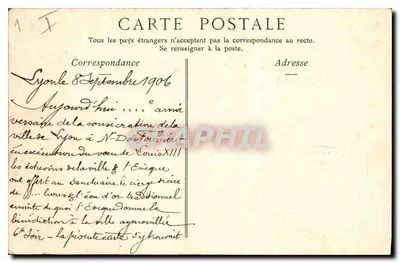 1 I
CARTE POSTALE
Tous les pays étrangers n'acceptent pas la correspondance au recto.
Se renseigner à la poste.
Correspondance
Adresse
Lyon le 8 Septembre 1906
Aujourd'hui ....e anni
versaire de la consécration de la
ville de Lyon à N-D de Fourvière
en exécution du vœu de Louis XIII
les échevins de la ville & l'Evêque
ont offert au sanctuaire le cierge
de f... livres & l'écu d'or traditionnel
ensuite de quoi l'Evêque donne la
bénédiction à la ville agenouillée
6h Soir - la pieuse